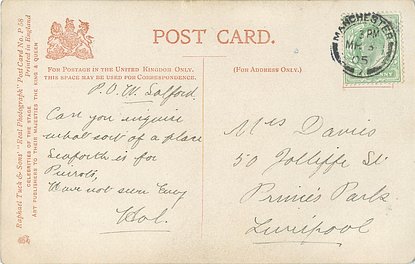 Raphael Tuck & Sons' "Real Photograph" Post Card No. P 58
Printed in England
CELEBRITIES OF THE STAGE
ART PUBLISHERS TO THEIR MAJESTIES THE KING & QUEEN
POST CARD.
FOR POSTAGE IN THE UNITED KINGDOM ONLY.
THIS SPACE MAY BE USED FOR CORRESPONDENCE.
(FOR ADDRESS ONLY.)
MANCHESTER
PM
05
P.O.W. Salford
Can you inquire
what sort of a place
Seaforth is for
Pierrots,
Have not seen
Hal.
Mrs Davies
50 Jolliffe St
Princes Park
Liverpool